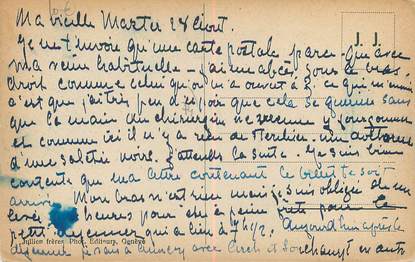 Ma vieille Marter 28 Aout.
Je ne t'envoie qu'une carte postale parce que avec
ma veine habituelle j'ai un abcès sous le bras
droit comme celui qu'on m'a ouvert à
c'est que j'ai très peu d'espoir que cela se guérisse sans
que la main du chirurgien ne vienne y fourgonner
et comme ici il n'y a rien de
d'une saleté noire. J'attends la suite. Je suis bien
contente que ma lettre contenant le billet te soit
arrivée. Mon bras n'est rien mais je suis obligée de me
lever heures pour être à peine prête pour le
petit déjeuner qui a lieu à 7h 1/2. Aujourd'hui après le
déjeuner je vais à Annecy avec et en auto
J. J.
Jullien frères, Phot. Editeurs, Genève